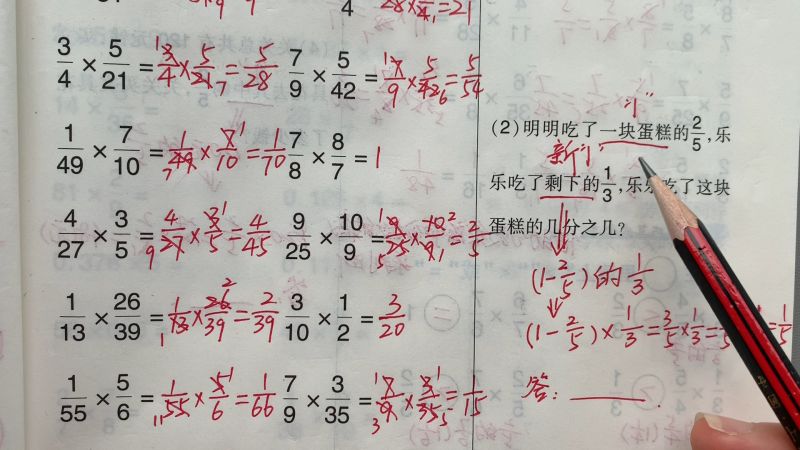 28×3/4=21
3/4×5/21=3/4×5/21=5/28
7/9×5/42=7/9×5/42=5/54
1/49×7/10=1/49×7/10=1/70
7/8×8/7=1
4/27×3/5=4/27×3/5=4/45
9/25×10/9=9/25×10/9=2/5
1/13×26/39=1/13×26/39=2/39
3/10×1/2=3/20
1/55×5/6=1/55×5/6=1/66
7/9×3/35=7/9×3/35=1/15
"1"
(2)明明吃了一块蛋糕的2/5,乐
新"1"
乐吃了剩下的1/3,乐乐吃了这块
蛋糕的几分之几?
(1-2/5)的1/3
(1-2/5)×1/3=3/5×1/3=1/5
答: